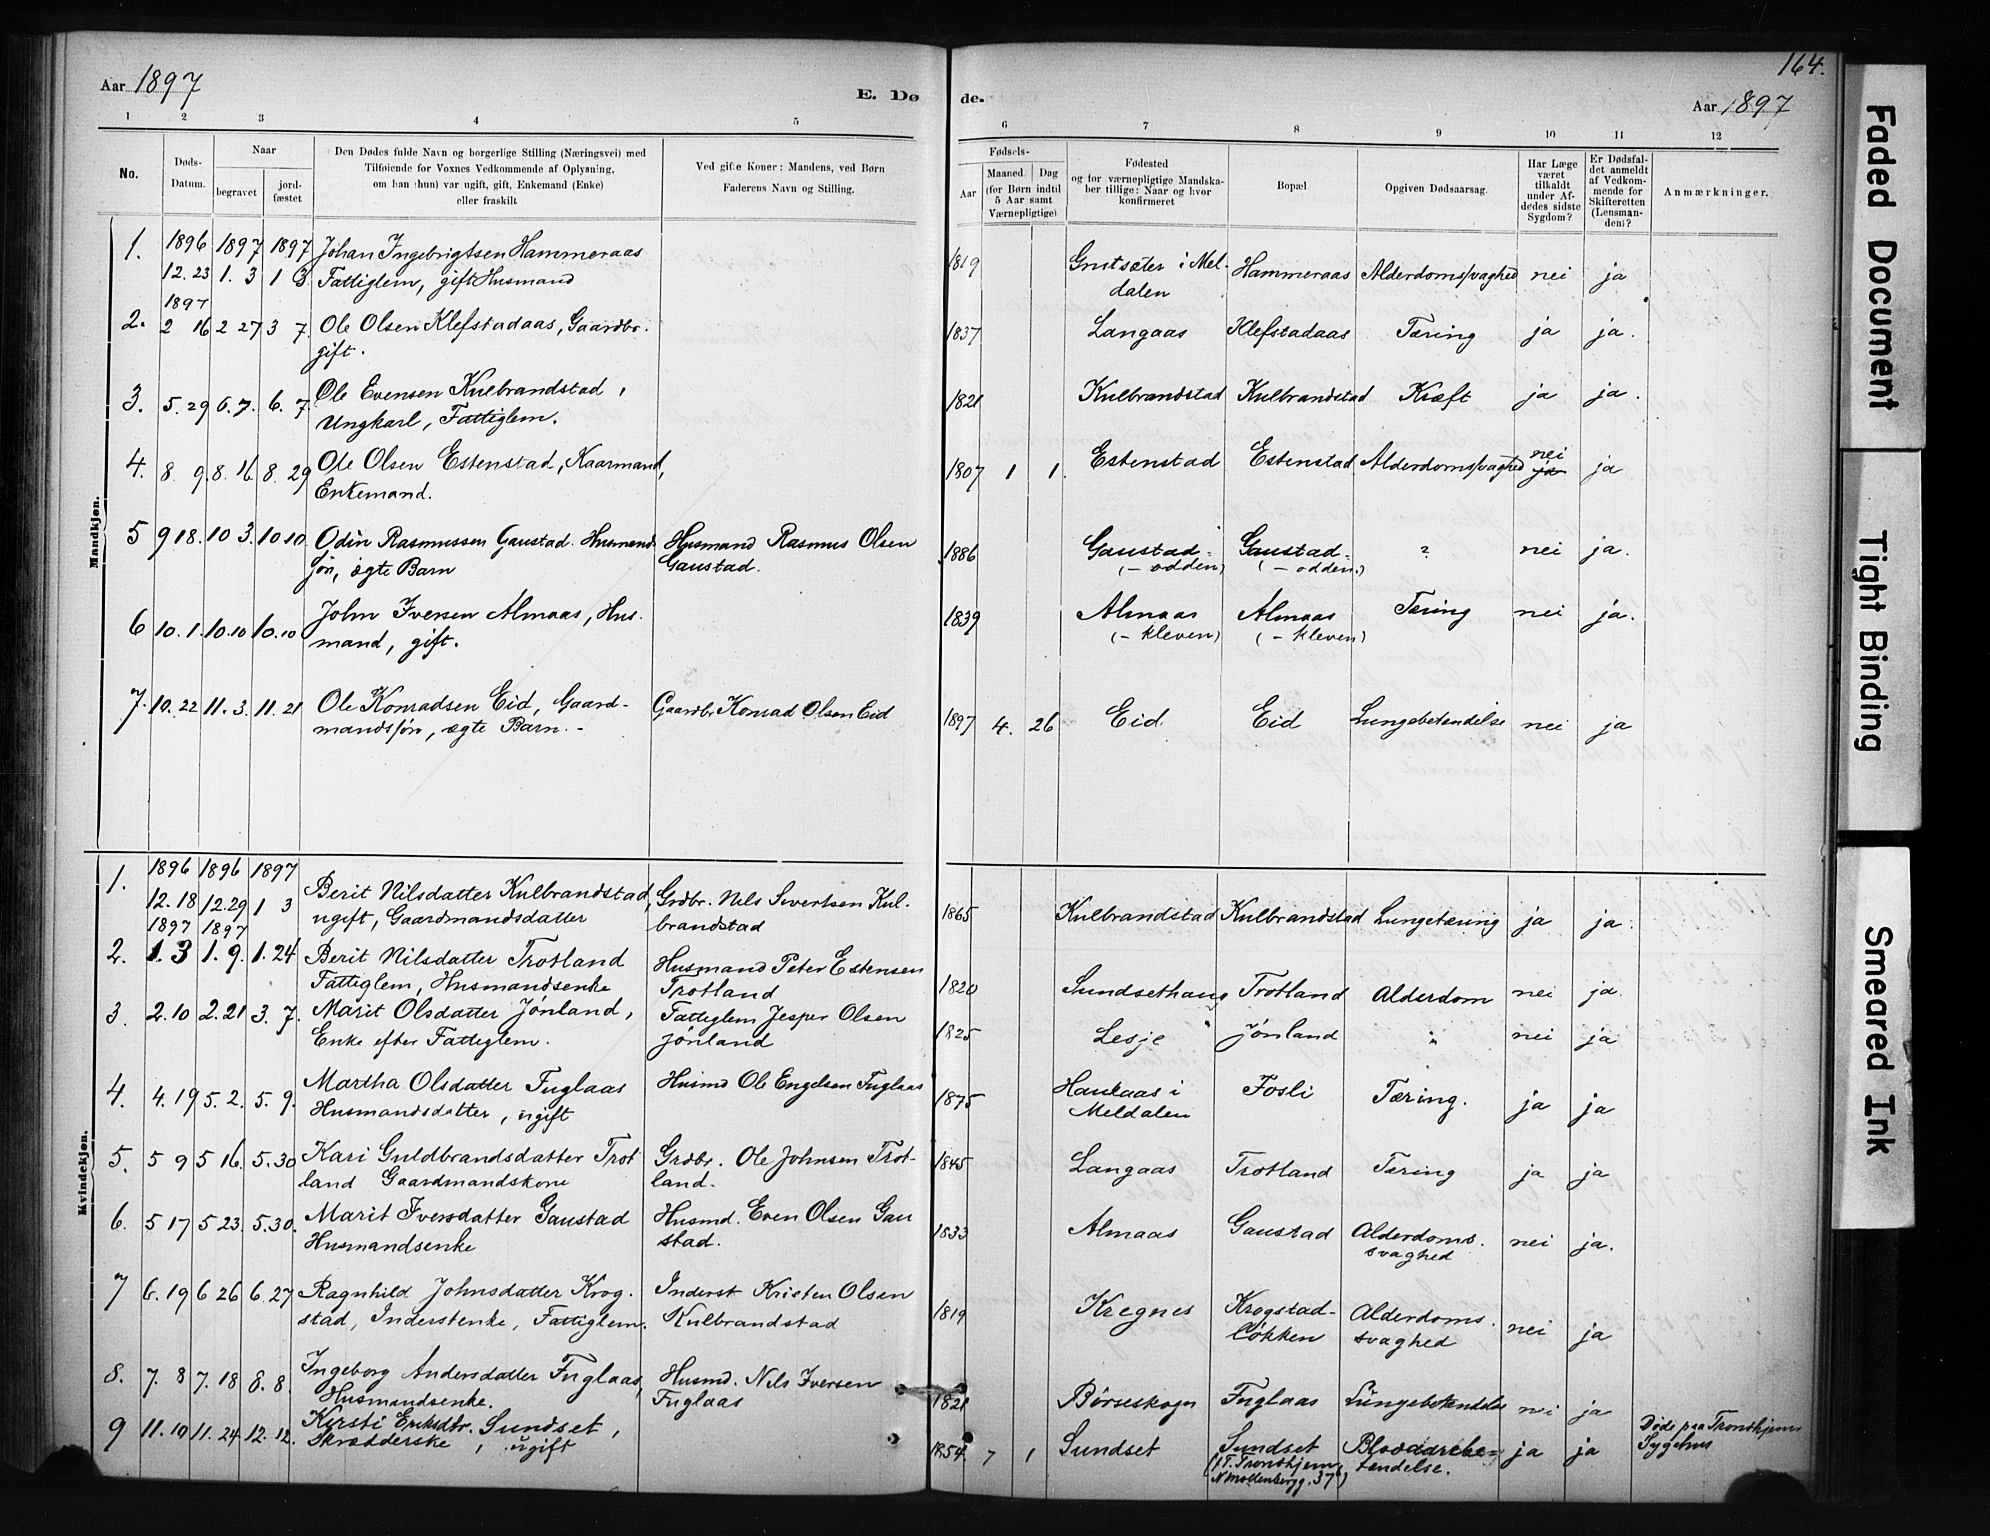 Aar 1897
E. Dø
1 2 3 4 5
No.
Døds-
Datum.
Naar
begravet
jord-
fæstet
Den Dødes fulde Navn og borgerlige Stilling (Næringsvei) med
Tilføiende for Voxnes Vedkommende af Oplysning,
om han (hun) var ugift, gift, Enkemand (Enke)
eller fraskilt
Ved gifte Koner: Mandens, ved Børn
Faderens Navn og Stilling.
Mandkjøn.
1. 1896 1897 1897 Johan Ingebrigtsen Hammeraas
12.23 1. 3 1 3. Fattiglem, gift Husmand
1897
2. 2 16 2 27 3 7. Ole Olsen Klefstadaas, Gaardbr.
gift.
3. 5.29 6.7. 6. 7. Ole Evensen Kulbrandstad,
Ungkarl, Fattiglem.
4. 8 9. 8.16 8.29 Ole Olsen Estenstad, Kaarmand,
Enkemand.
5 9 18. 10 3. 10 10. Odin Rasmussen Gaustad. Husmands- Husmand Rasmus Olsen
søn, ægte Barn Gaustad.
6 10.1. 10.10 10.10 John Iversen Almaas, Hus-
mand, gift.
7. 10.22 11.3. 11.21 Ole Konradsen Eid, Gaard- Gaardbr. Konrad Olsen Eid
mandssøn, ægte Barn.
Kvindekjøn.
1. 1896 1896 1897
12.18 12.29 1 3 Berit Nilsdatter Kulbrandstad, Grdbr. Nels Sivertsen Kul-
1897 1897 ugift, Gaardmandsdatter brandstad
2. 1.3 1.9. 1.24 Berit Nilsdatter Trotland Husmand Peter Estensen
Fattiglem, Husmandsenke Trotland
3. 2.10 2.21 3.7. Marit Olsdatter Jønland, Fattiglem Jesper Olsen
Enke efter Fattiglem. Jønland
4. 4.19 5.2. 5.9. Martha Olsdatter Fuglaas Husmd Ole Engelsen Fuglaas
Husmandsdatter, ugift
5. 5 9 5 16. 5.30 Kari Guldbrandsdatter Trot- Grdbr. Ole Johnsen Trot-
land Gaardmandskone land.
6. 5 17 5 23. 5.30. Marit Iversdatter Gaustad Husmd. Even Olsen Gau
Husmandsenke stad.
7 6.19 6 26 6.27 Ragnhild Johnsdatter Krog- Inderst Kristen Olsen
stad, Inderstenke, Fattiglem. Kulbrandstad
8. 7. 8 7.18 8.8. Ingeborg Andersdatter Fuglaas, Husmd. Nils Iversen
Husmandsenke. Fuglaas
9 11.10 11.24 12.12. Kirsti Eriksdtr. Sundset,
Skrædderske, ugift
164.
de.
Aar 1897
6 7 8 9 10 11 12
Fødsels-
Aar
Maaned Dag
(for Børn indtil
5 Aar samt
Værnepligtige)
Fødested
og for værnepligtige Mandska-
ber tillige: Naar og hvor
konfirmeret
Bopæl.
Opgiven Dødsaarsag.
Har Læge
været
tilkaldt
under Af-
dødes sidste
Sygdom?
Er Dødsfal-
det anmeldt
af Vedkom-
mende for
Skifteretten
(Lensman-
den)?
Anmærkninger.
1819 Grutsæter i Mel- Hammeraas Alderdomssvaghed nei ja
dalen
1837 Langaas Klefstadaas Tæring ja ja.
1821 Kulbrandstad Kulbrandstad Kræft ja ja.
1807 1 1. Estenstad Estenstad Alderdomssvaghed nei ja ja
1886 Gaustad- Gaustad- ? nei ja.
(- odden) (- odden.)
1839 Almaas Almaas Tæring nei ja.
(- Kleven) (- Kleven)
1897 4. 26 Eid. Eid Lungebetendelse nei ja
1865 Kulbrandstad Kulbrandstad Lungetæring ja ja.
1820 Sundsethaug Trotland Alderdom nei ja.
1825 Lesje Jønland " nei ja
1875 Haukaas i Fosli Tæring. ja ja
Meldalen
1845 Langaas Trotland Tæring ja ja
1833 Almaas Gaustad Alderdoms- nei ja.
svaghed
1819 Kregnes Krogstad- Alderdoms- nei ja
løkken svaghed
1821 Børseskogn Fuglaas Lungebetendelse nei ja
1854. 7 1 Sundset Sundset Blodaarebe- ja ja Døde paa Trondhjems
(i T. Trondhjem, tendelse. Sygehus
N Møllenbergg. 37)
Faded Document
Tight Binding
Smeared Ink